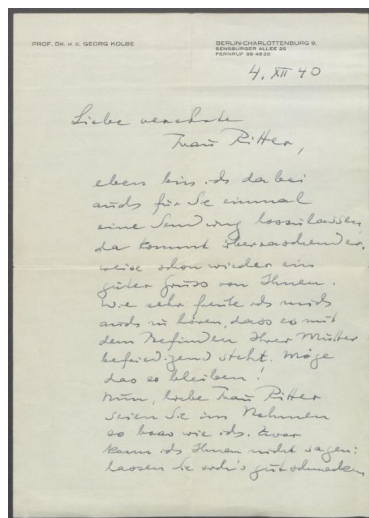 PROF. DR. H. C. GEORG KOLBE
BERLIN-CHARLOTTENBURG 9,
SENSBURGER ALLEE 25
4. XII 40
Liebe verehrte
Frau Ritter,
eben bin ich dabei
auch für Sie einmal
eine Sendung loszulassen,
da kommt überraschender-
weise schon wieder ein
guter Gruss von Ihnen.
Wie sehr freute ich mich
auch zu hören, dass es mit
dem Befinden Ihrer Mutter
befriedigend steht. Möge
das so bleiben!
Nun, liebe Frau Ritter
seien Sie im Nehmen
so baas wie ich. Zwar
kann ich Ihnen nicht sagen:
lassen Sie sich's gut schmecken